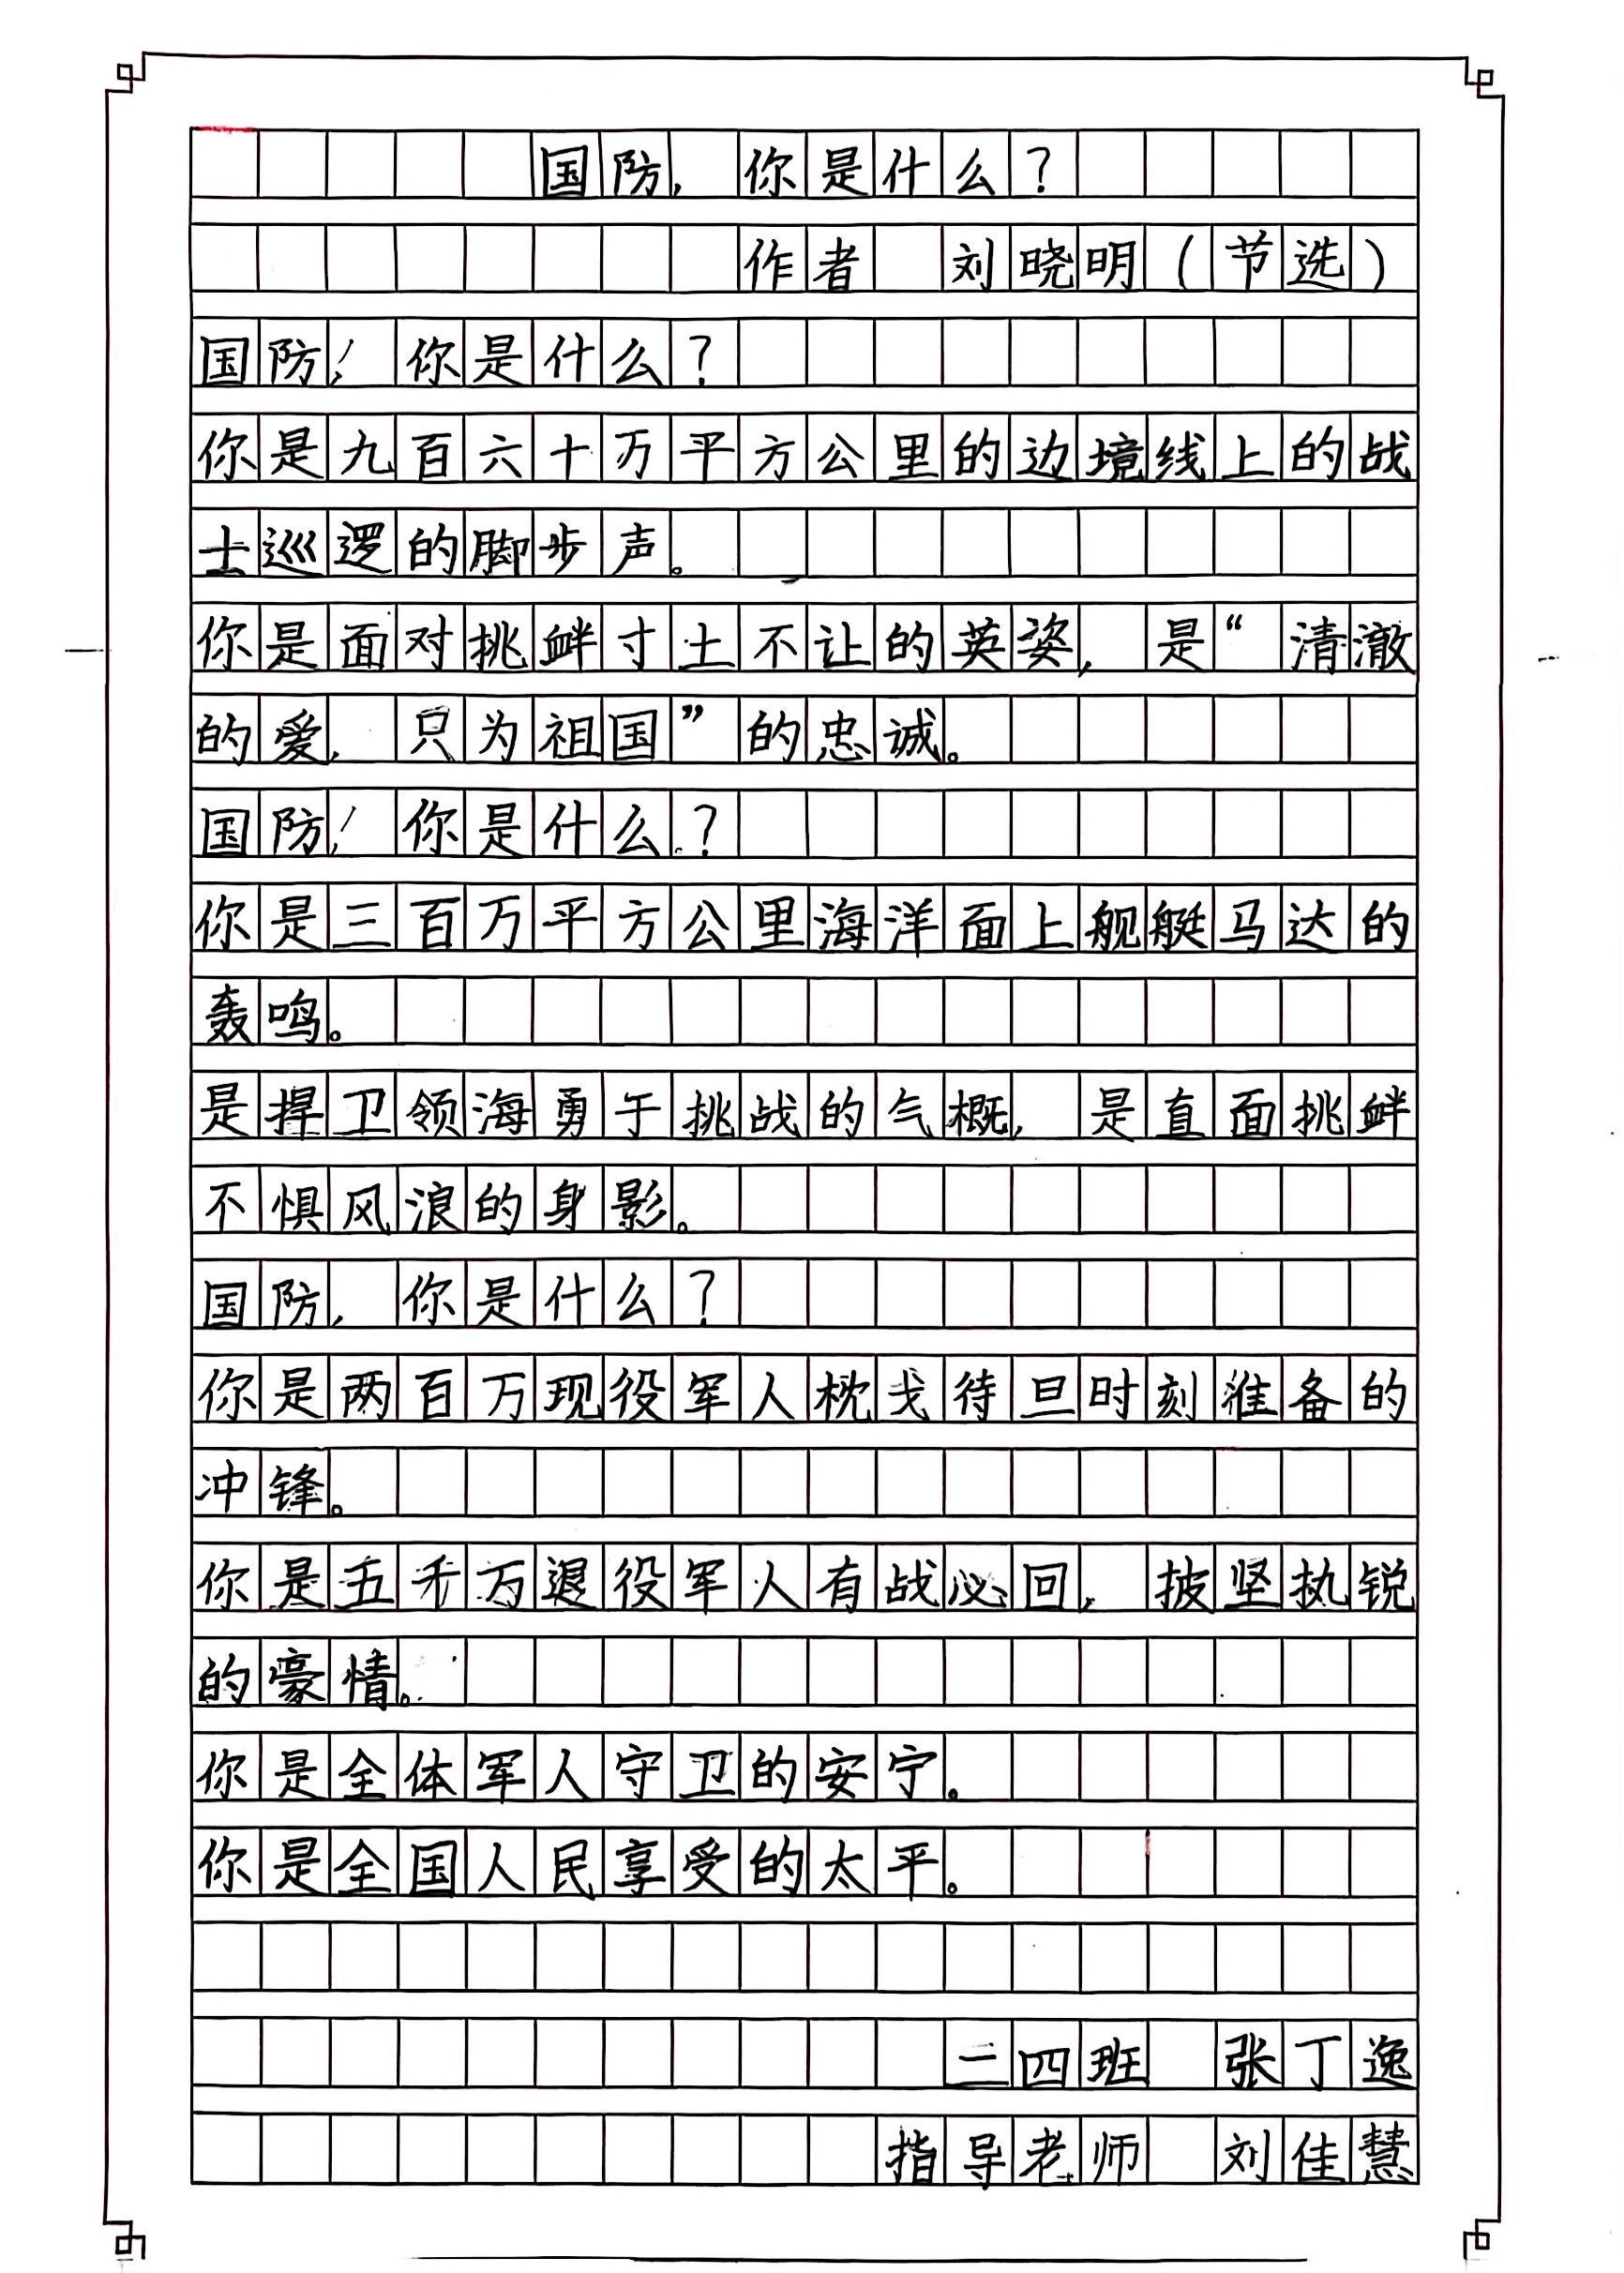 国防，你是什么？
作者 刘晓明（节选）
国防！你是什么？
你是九百六十万平方公里的边境线上的战
士巡逻的脚步声。
你是面对挑衅寸土不让的英姿，是“清澈
的爱，只为祖国”的忠诚。
国防！你是什么？
你是三百万平方公里海洋面上舰艇马达的
轰鸣。
是捍卫领海勇于挑战的气概，是直面挑衅
不惧风浪的身影。
国防，你是什么？
你是两百万现役军人枕戈待旦时刻准备的
冲锋。
你是五千万退役军人有战必回，披坚执锐
的豪情。
你是全体军人守卫的安宁。
你是全国人民享受的太平。
二四班 张丁逸
指导老师 刘佳慧